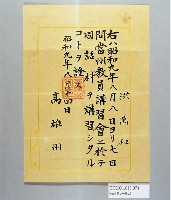 洪萬
右ハ昭和九年八月八日ヨリ七日
間當州教員講習會ニ於テ
國語科ヲ講習シタル
コトヲ證ス
昭和九年八月十四日
高雄州